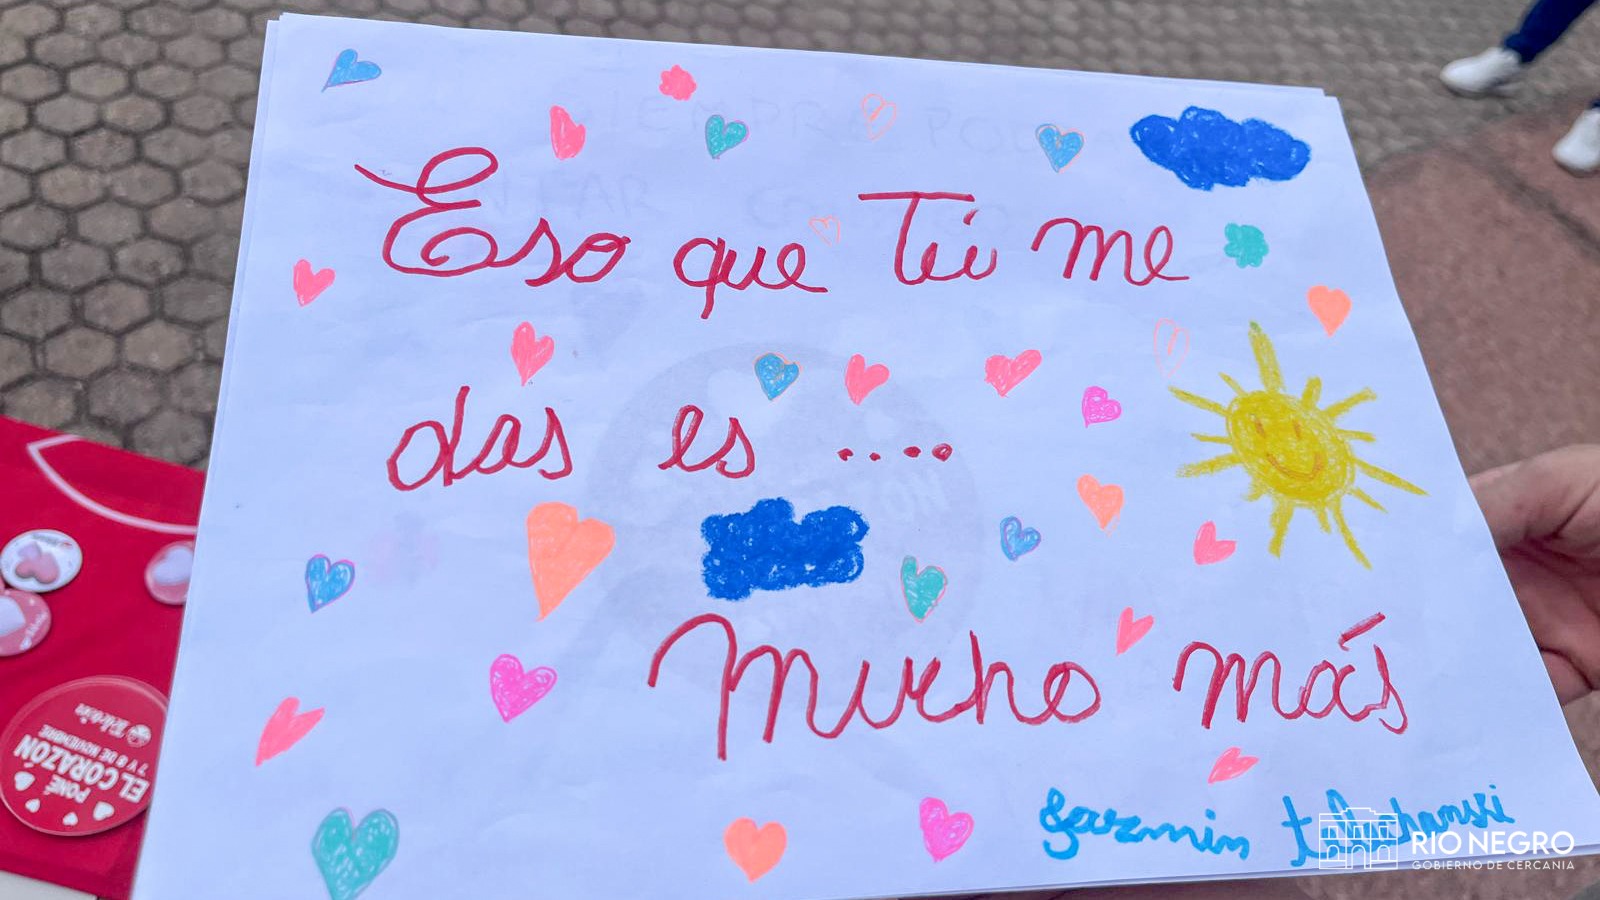 Eso que Tú me
das es ....
Mucho más
PONÉ
EL CORAZÓN
7 Y 8 DE NOVIEMBRE
Teletón
RIO NEGRO
GOBIERNO DE CERCANÍA